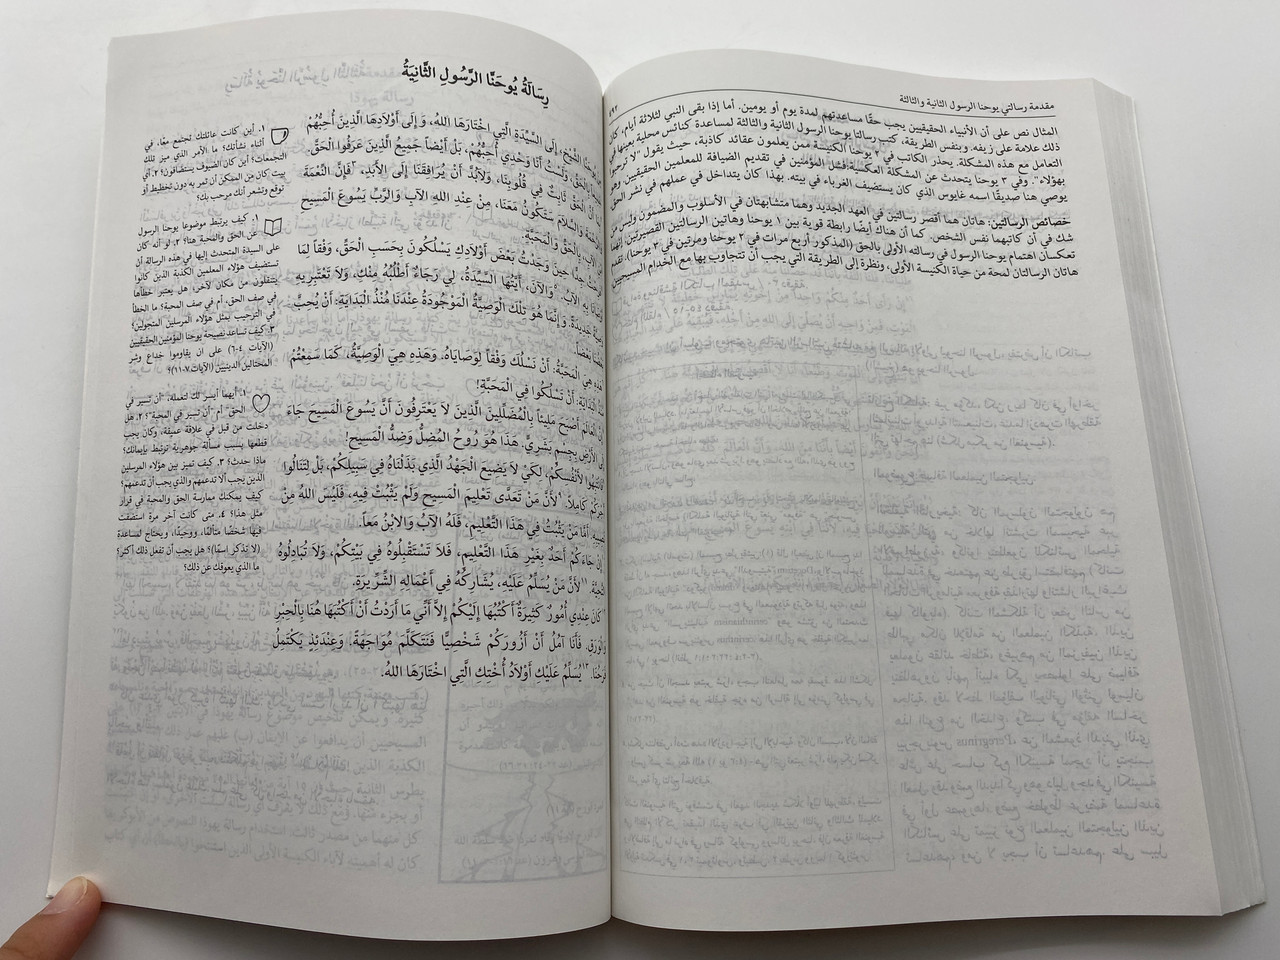 مقدمة رسالتي يوحنا الرسول الثانية والثالثة
المثال نص على أن الأنبياء الحقيقيين يجب حقًا مساعدتهم لمدة يوم أو يومين. أما إذا بقى النبي لثلاثة أيام،
ذلك علامة على زيفه. وبنفس الطريقة، كتب رسالتا يوحنا الرسول الثانية والثالثة لمساعدة كنائس محلية بعينها في
التعامل مع هذه المشكلة. يحذر الكاتب في ٢ يوحنا الكنيسة ممن يعلمون عقائد كاذبة، حيث يقول "لا ترحبوا
بهؤلاء". وفي ٣ يوحنا يتحدث عن المشكلة العكسية:فشل المؤمنين في تقديم الضيافة للمعلمين الحقيقيين. وهو
يوصي هنا صديقًا اسمه غايوس الذي كان يستضيف الغرباء في بيته. بهذا كان يتداخل في عملهم في نشر الحق.
خصائص الرسالتين: هاتان هما أقصر رسالتين في العهد الجديد وهما متشابهتان في الأسلوب والمضمون وليس
شك في أن كاتبهما نفس الشخص. كما أن هناك أيضًا رابطة قوية بين ١ يوحنا وهاتين الرسالتين القصيرتين. إنهما
تعكسان اهتمام يوحنا الرسول في رسالته الأولى بالحق (المذكور أربع مرات في ٢ يوحنا ومرتين في ٣ يوحنا). تقدم
هاتان الرسالتان لمحة من حياة الكنيسة الأولى، ونظرة إلى الطريقة التي يجب أن تتجاوب بها مع الخدام المسيحيين
رِسَالَةُ يُوحَنَّا الرَّسُولِ الثَّانِيَةُ
الشَّيْخِ، إِلَى السَّيِّدَةِ الَّتِي اخْتَارَهَا اللهُ، وَإِلَى أَوْلادِهَا الَّذِينَ أُحِبُّهُمْ
بِالْحَقِّ، وَلَسْتُ أَنَا وَحْدِي أُحِبُّهُمْ، بَلْ أَيْضاً جَمِيعُ الَّذِينَ عَرَفُوا الْحَقَّ.
أَنَّ الْحَقَّ ثَابِتٌ فِي قُلُوبِنَا، وَلابُدَّ أَنْ يُرَافِقَنَا إِلَى الأَبَدِ، ٣فَإِنَّ النِّعْمَةَ
وَالسَّلامَ سَتَكُونُ مَعَنَا، مِنْ عِنْدِ اللهِ الآبِ وَالرَّبِّ يَسُوعَ الْمَسِيحِ
الآبِ، بِالْحَقِّ وَالْمَحَبَّةِ.
فَرِحْتُ جِدّاً حِينَ وَجَدْتُ بَعْضَ أَوْلادِكِ يَسْلُكُونَ بِحَسَبِ الْحَقِّ، وَفْقاً لِمَا
الآبِ. ٥وَالآنَ، أَيَّتُهَا السَّيِّدَةُ، لِي رَجَاءٌ أَطْلُبُهُ مِنْكِ، وَلاَ تَعْتَبِرِيهِ
وَصِيَّةً جَدِيدَةً. وَإِنَّمَا هُوَ تِلْكَ الْوَصِيَّةُ الْمَوْجُودَةُ عِنْدَنَا مُنْذُ الْبَدَايَةِ: أَنْ يُحِبَّ
بَعْضُنَا بَعْضاً.
هَذِهِ هِيَ الْمَحَبَّةُ: أَنْ نَسْلُكَ وَفْقاً لِوَصَايَاهُ. وَهَذِهِ هِيَ الْوَصِيَّةُ، كَمَا سَمِعْتُمْ
مُنْذُ الْبَدَايَةِ: أَنْ تَسْلُكُوا فِي الْمَحَبَّةِ!
الْعَالَمُ أَصْبَحَ مَلِيئاً بِالْمُضَلِّلِينَ الَّذِينَ لاَ يَعْتَرِفُونَ أَنَّ يَسُوعَ الْمَسِيحَ جَاءَ
إِلَى الأَرْضِ بِجِسْمٍ بَشَرِيٍّ. هَذَا هُوَ رُوحُ الْمُضِلِّ وَضِدُّ الْمَسِيحِ!
فَانْتَبِهُوا لأَنْفُسِكُمْ، لِكَيْ لاَ يَضِيعَ الْجَهْدُ الَّذِي بَذَلْنَاهُ فِي سَبِيلِكُمْ، بَلْ لِتَنَالُوا
أَجْرَكُمْ كَامِلاً. ٩لأَنَّ مَنْ تَعَدَّى تَعْلِيمَ الْمَسِيحِ وَلَمْ يَثْبُتْ فِيهِ، فَلَيْسَ اللهُ مِنْ
نَصِيبِهِ. أَمَّا مَنْ يَثْبُتُ فِي هَذَا التَّعْلِيمِ، فَلَهُ الآبُ وَالابْنُ مَعاً.
إِنْ جَاءَكُمْ أَحَدٌ بِغَيْرِ هَذَا التَّعْلِيمِ، فَلاَ تَسْتَقْبِلُوهُ فِي بَيْتِكُمْ، وَلاَ تُبَادِلُوهُ
التَّحِيَّةَ. ١١لأَنَّ مَنْ يُسَلِّمُ عَلَيْهِ، يُشَارِكُهُ فِي أَعْمَالِهِ الشِّرِّيرَةِ.
كَانَ عِنْدِي أُمُورٌ كَثِيرَةٌ أَكْتُبُهَا إِلَيْكُمْ إِلاَّ أَنِّي مَا أَرَدْتُ أَنْ أَكْتُبَهَا هُنَا بِالْحِبْرِ
وَالْوَرَقِ. فَأَنَا آمُلُ أَنْ أَزُورَكُمْ شَخْصِيّاً فَنَتَكَلَّمَ مُوَاجَهَةً. وَعِنْدَئِذٍ يَكْتَمِلُ
فَرَحُنَا. ١٣يُسَلِّمُ عَلَيْكِ أَوْلاَدُ أُخْتِكِ الَّتِي اخْتَارَهَا اللهُ.
١. أين كانت عائلتك تجتمع معًا، في
أثناء نشأتك؟ ما الأمر الذي ميز تلك
التجمعات؟ أين كان الضيوف يستضافون؟ ٢. أي
بيت كان من الممكن أن تمر به دون تخطيط أو
توقع وتشعر أنك مرحب بك؟
١. كيف يرتبط موضوع يوحنا الرسول
عن الحق والمحبة هنا؟ ٢. لو أنه كان
على السيدة المتحدث إليها في هذه الرسالة أن
تستضيف هؤلاء المعلمين الكذبة الذين كانوا
يتنقلون من مكان لآخر، هل يعتبر خطأها
في صف الحق، أم في صف المحبة؟ ما الخطأ
في الترحيب بمثل هؤلاء المرسلين المتجولين؟
٣. كيف تساعد نصيحة يوحنا المؤمنين الحقيقيين
(الآيات ٤-٦) على ان يقاوموا خداع وشر
المحتالين الدينيين (الآيات ٧-١١)؟
١. أيهما أيسر لك لتفعله، "أن تسير في
الحق" أم "أن تسير في المحبة"؟ ٢. هل
دخلت من قبل في علاقة عميقة، وكان يجب
قطعها بسبب مسألة جوهرية ترتبط بإيمانك؟
ماذا حدث؟ ٣. كيف تميز بين هؤلاء المرسلين
الذين يجب ألا تدعمهم والذي يجب أن تدعمهم؟
كيف يمكنك ممارسة الحق والمحبة في قرار
مثل هذا؟ ٤. متى كانت آخر مرة استضفت
فيها شخصًا متألمًا، ووحيدًا، ويحتاج لمساعدة
(لا تذكر اسمًا)؟ هل يجب أن تفعل ذلك أكثر؟
ما الذي يعوقك عن ذلك؟